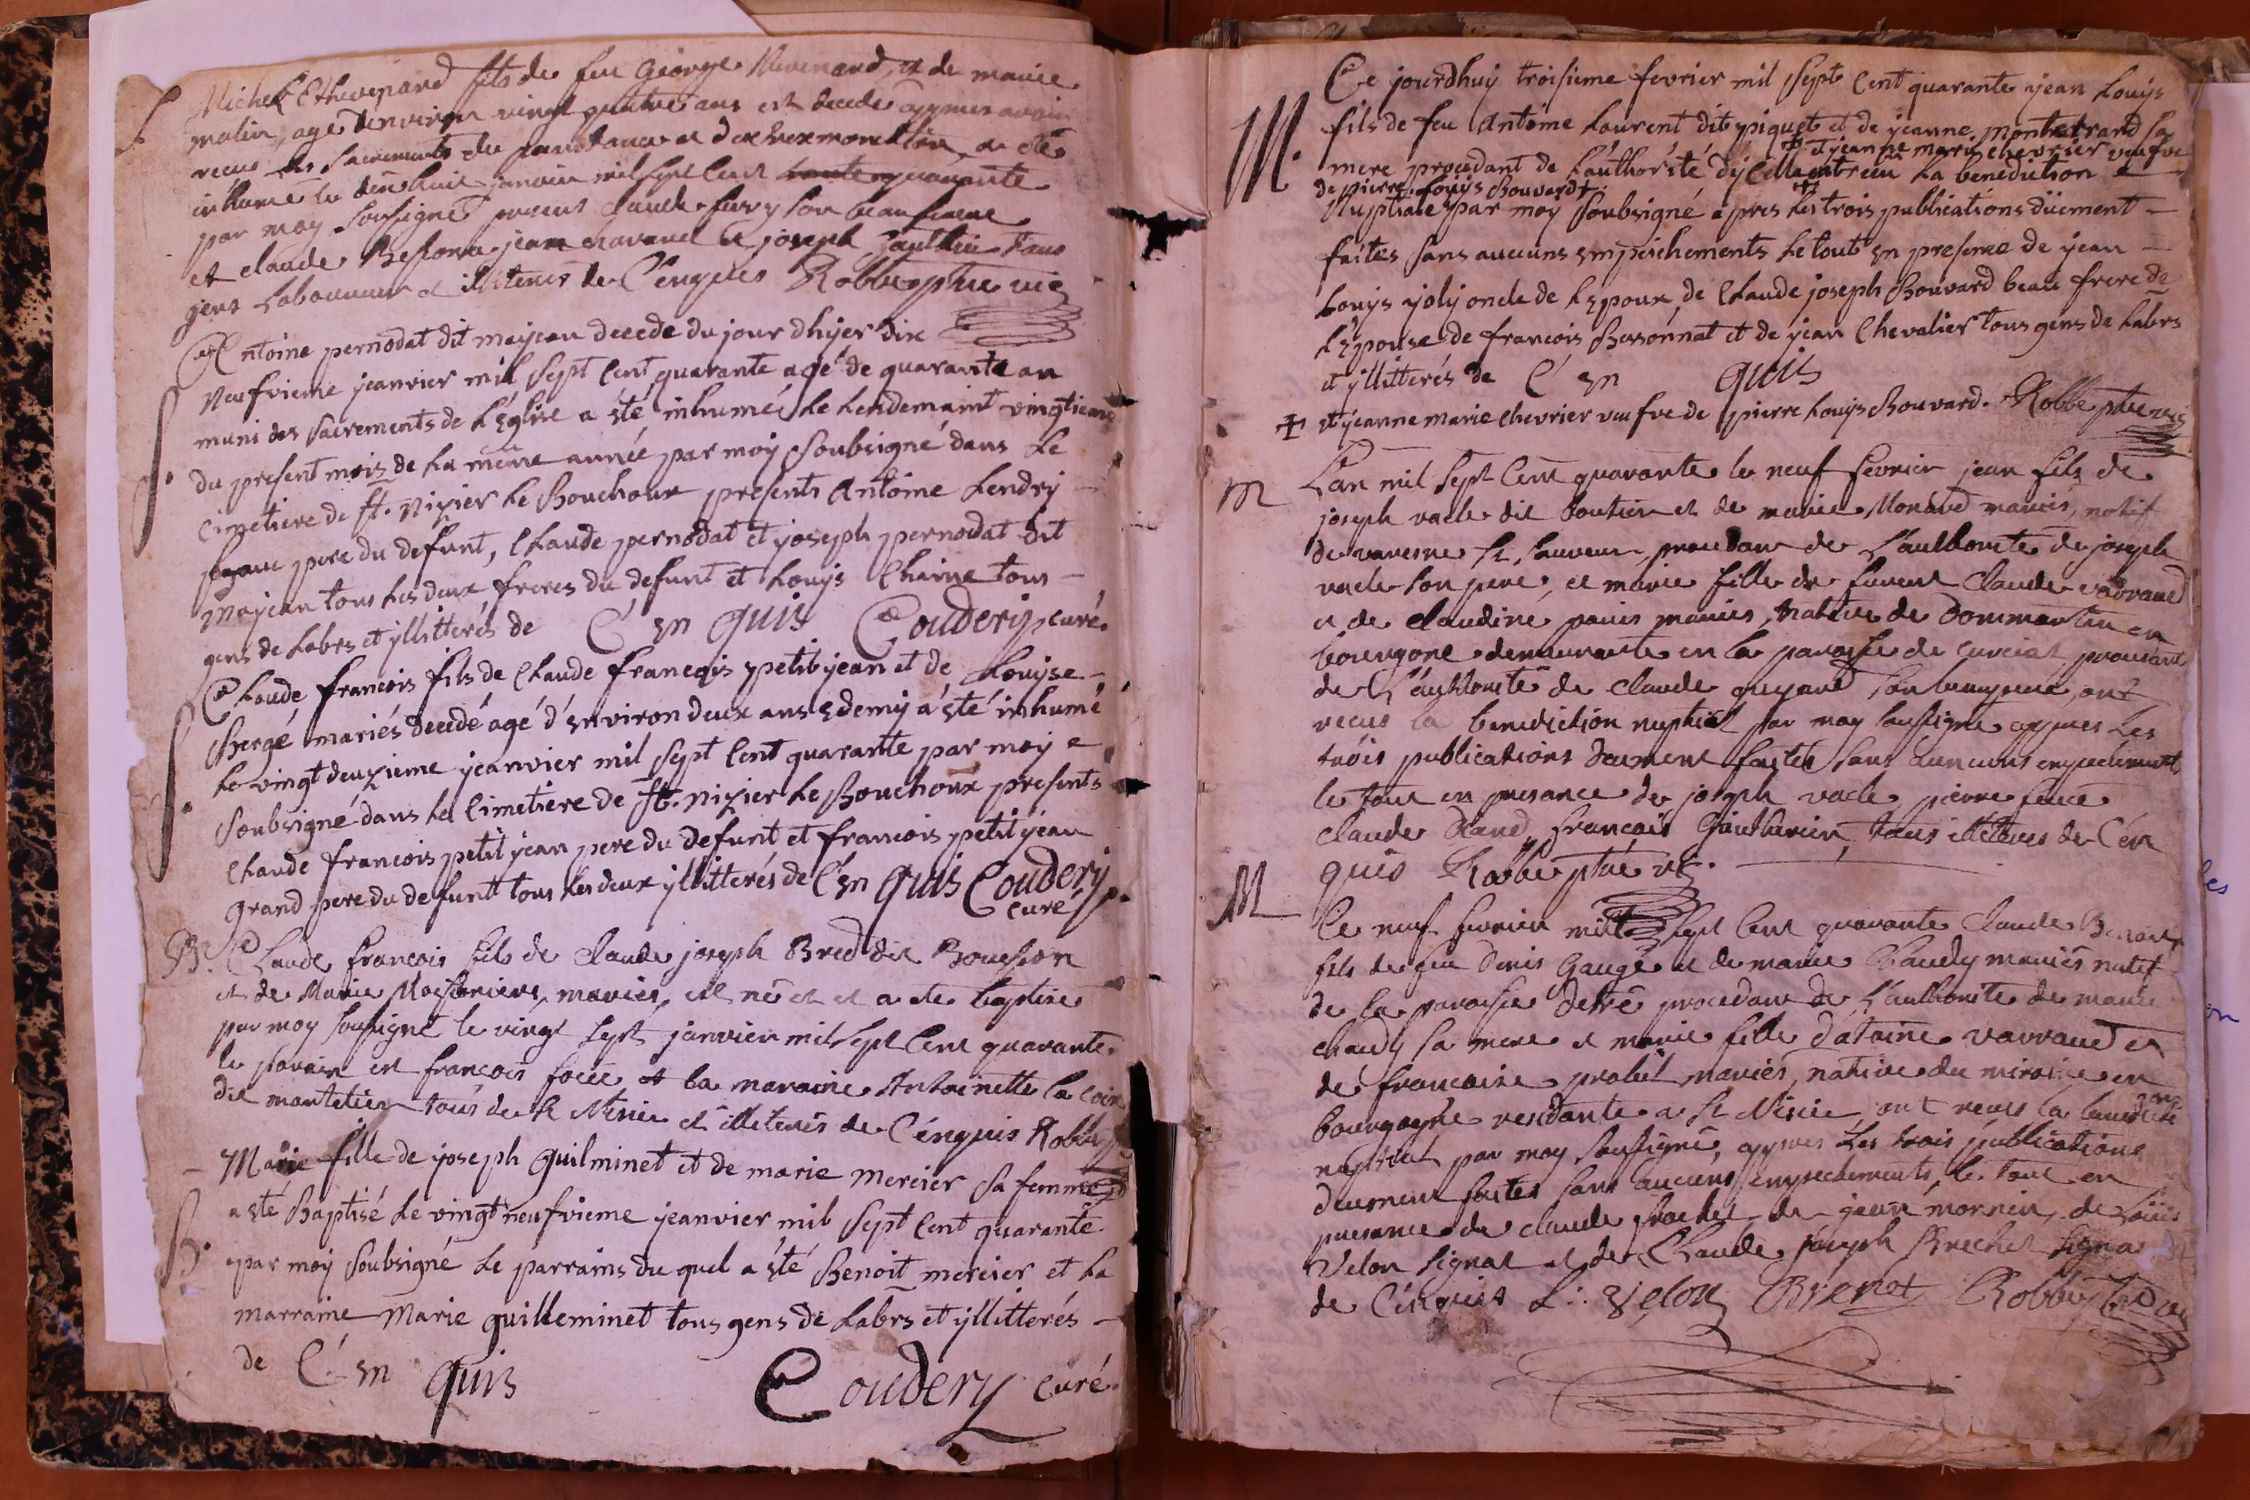 Michel Ethevenard fils de feu George thevenard, et de marie
matin, agé denviron vingt quatre ans est decede appres avoir
receu les sacrements de penitance et dextreme onction, a ete
inhumé le dix huit janvier mil sept cent quarante
par moy soussigné present claude fevry son beau frere
et claude jean chavanel et joseph gauthier tous
gens laboureur et illiterés de Cenquis Robbe ptre vic
Antoine pernodat dit mayjean decede du jour dhyer dix
neufvieme jeanvier mil sept cent quarante agé de quarante an
muni des sacrements de LEglise a eté inhumé Le Lendemaint vingtieme
du present mois de La meme année par moy soubsigné dans Le
cimetiere de st. nizier Le Bouchoux presents Antoine Lendry
pere du defunt, Claude pernodat et joseph pernodat dit
mayjean tous Les deux freres du defunt et Louys Chaine tous
gens de Labrs et yllitterés de C'en quis Coudery curé.
Claude francois fils de Claude francois petit jean et de Louyse
Bergé mariés decedé agé d'environ deux ans & demy a été inhumé
Le vingt deuzieme jeanvier mil sept cent quarante par moy
soubsigné dans Le cimetiere de st. nizier Le Bouchoux presents
Claude francois petit jean pere du defunt et francois petit jean
grand pere du defunt tous Les deux yllitterés de C'en quis Coudery
curé
B. Claude francois fils de Claude joseph Bred dit Bouchon
et de Marie mariés, est né et a ete baptisé
par moy soussigné le vingt sept janvier mil sept cent quarante
le parain est francois et la maraine Antoinette la
dit mantelier tous de st Nisier et illiterés de Cenquis Robbe
Marie fille de joseph guilminet et de marie mercier sa femme
a été Baptisé Le vingt neufvieme jeanvier mil sept cent quarante
B. par moy soubsigné Le parrains du quel a été Benoit mercier et La
marraine Marie guilleminet tous gens de Labrs et yllitterés
de C'en quis Coudery curé
Ce jourdhuy troisieme fevrier mil sept cent quarante jean Louys
M. fils de feu Antoine Laurent dit piquet et de jeanne montrand sa
+ et jeanne marie chevrier veufve
mere procedant de Lauthorité dycelle ont receu La benediction
de pierre Louys Bouvard +
Nuptiale par moy soubsigné apres Les trois publications düement
faites sans aucuns empeschements Le tout en presence de jean
Louys joly oncle de Lepoux, de Claude joseph Bouvard beau frere de
Lepouse de francois Bessonnat et de jean Chevalier tous gens de Labrs
et yllitterés de C' en quis
+ et jeanne marie chevrier veufve de pierre Louys Bouvard. Robbe ptre vic
m Lan mil sept cent quarante le neuf fevrier jean fils de
joseph vacle dit boutier et de marie Monard mariés, natif
de varenne st sauveur procedant de Lauthorite de joseph
vacle son pere, et marie fille de Claude varraud
et de claudine mariés, native de Dommartin en
bourgone demeurante en la paroisse de curciat procedante
de Lauthorité de claude guyard son beaupere, ont
receus la benediction nuptial par moy soussigné appres les
trois publications deument faites sans aucuns empechements
le tout en presance de joseph vacle pierre
claude francois Gauthier, tous illiteres de Cen
quis Robbe ptre vic.
M Le neuf fevrier mil sept cent quarante Claude
fils de feu Denis Gauge et de marie Chaudy mariés natif
de la paroisse procedant de Lauthorite de marie
chaudy sa mere et marie fille dataine varraud et
de francoise probet mariés, native du miroir en
bourgogne residante a st Nisier ont receus la benedicti
nuptial par moy soussigné, appres Les trois publications
deument faites sans aucuns empechements, le tout en
presance de claude de jean mornein, de Louis
velon signat et de Claude joseph Brechet signa
de Cenquis L. velon Robbe